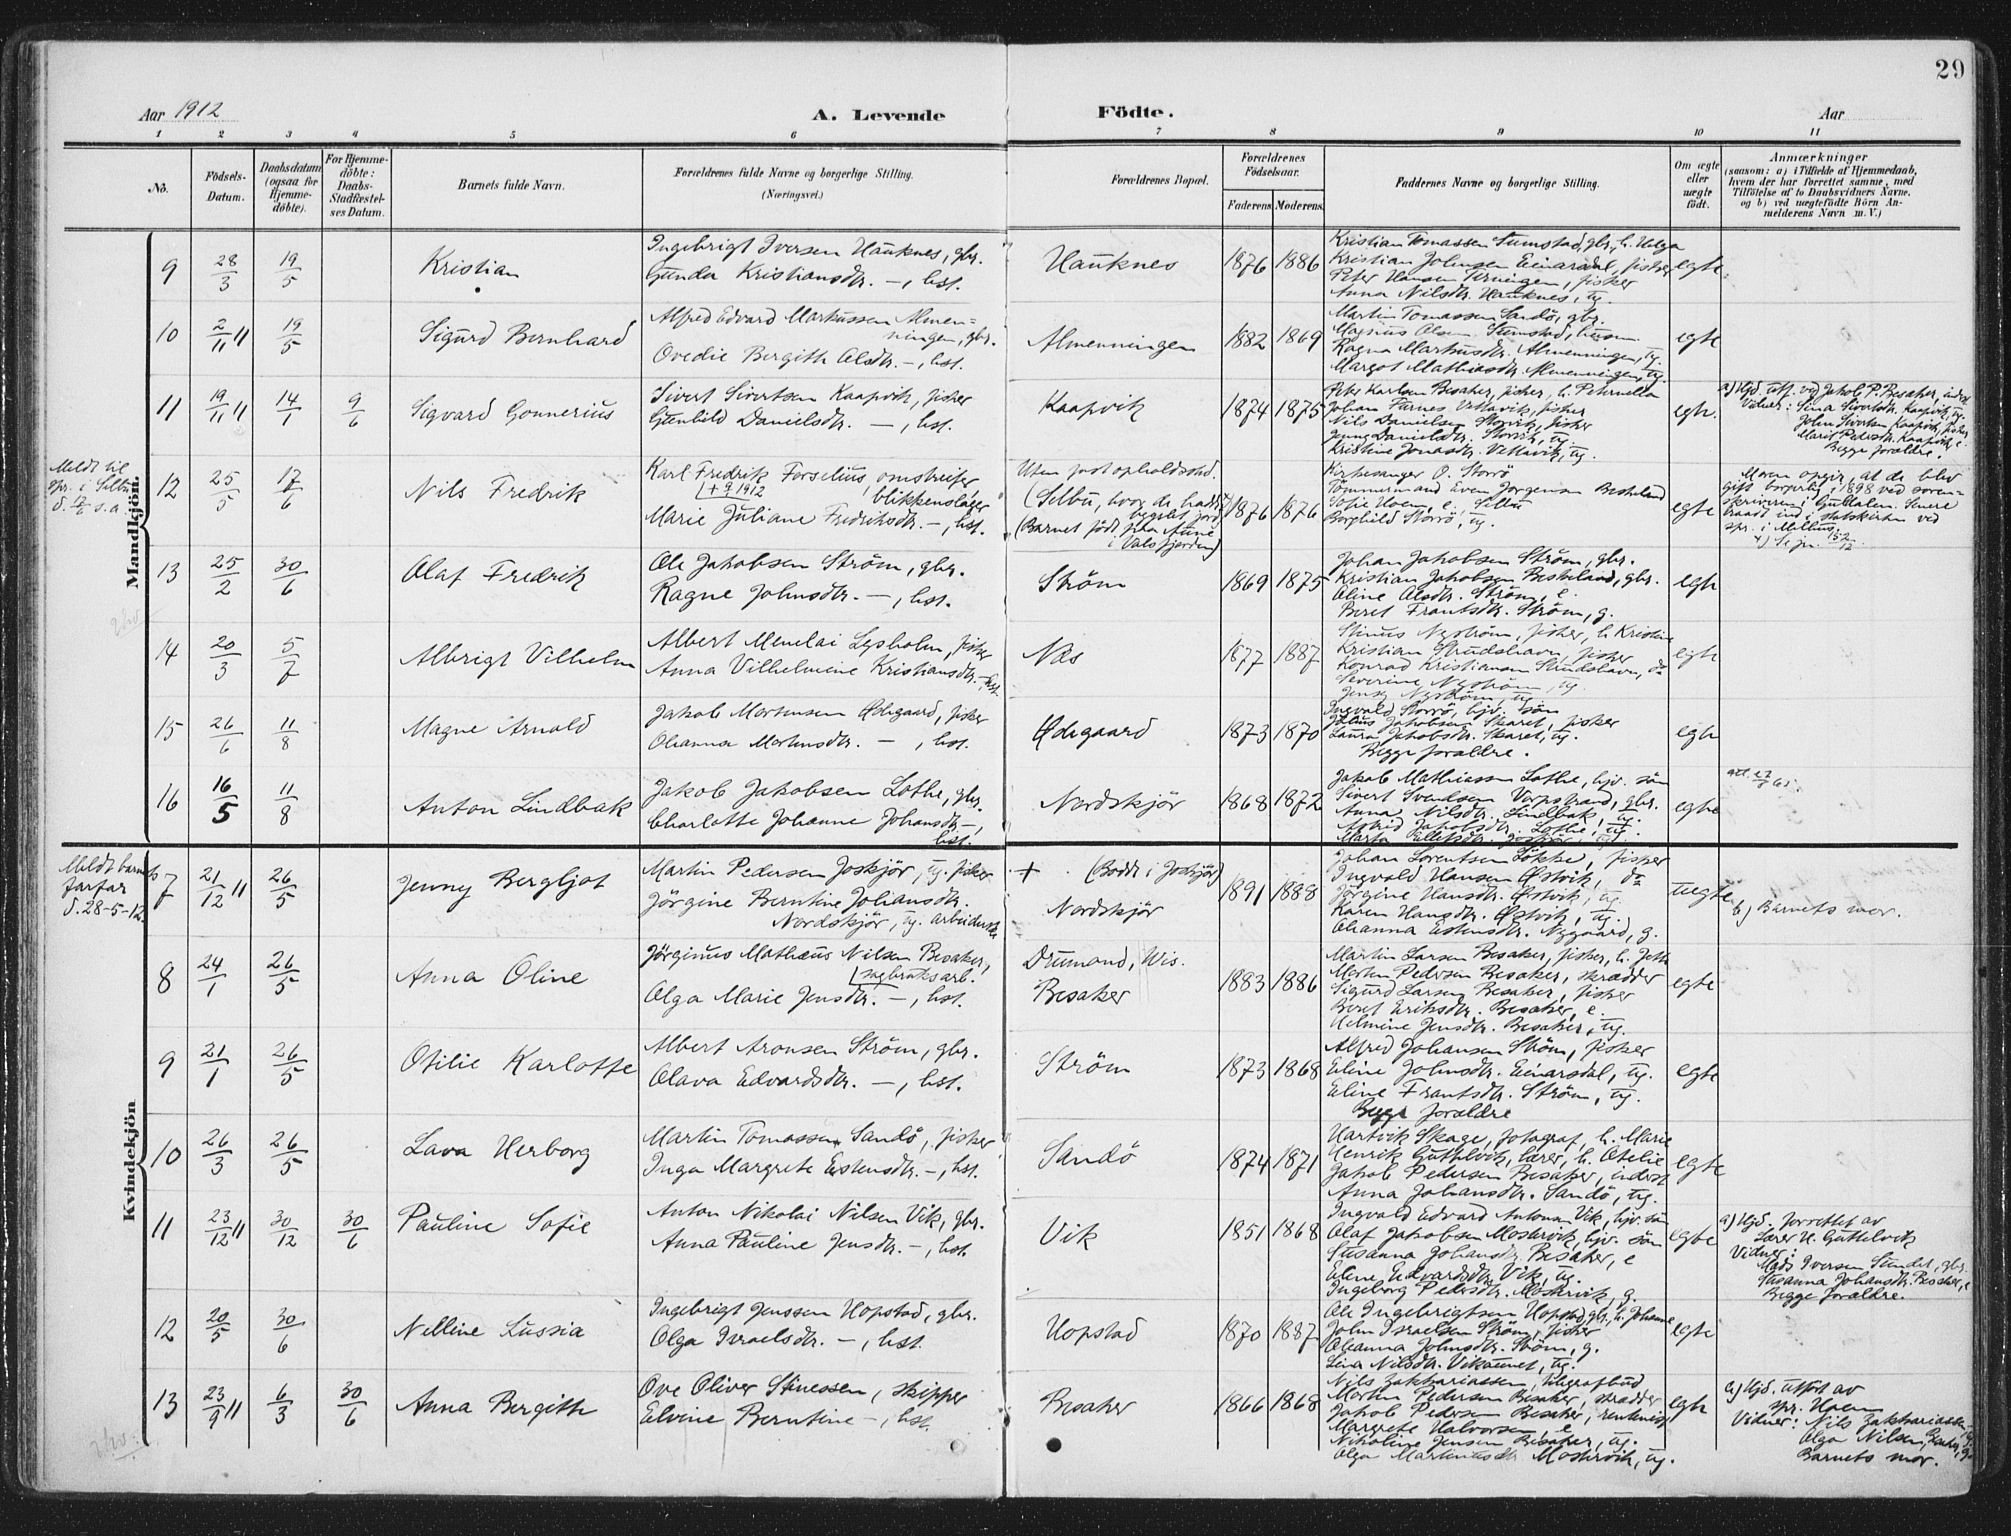 29
Aar 1912
A. Levende
Födte.
Aar
1 2 3 4 5 6 7 8 9 10 11
No.
Födsels-Datum.
Daabsdatum (ogsaa for Hjemme-döbte).
For Hjemme-döbte: Daabs-Stadfæstel-ses Datum.
Barnets fulde Navn.
Forældrenes fulde Navne og borgerlige Stilling.
(Næringsvei.)
Forældrenes Bopæl.
Forældrenes Födselsaar.
Faderens Moderens
Faddernes Navne og borgerlige Stilling.
Om ægte eller uægte födt.
Anmærkninger
(saasom: a) i Tilfælde af Hjemmedaab, hvem der har forrettet samme, med Tilföielse af to Daabsvidners Navne, og b) ved uægtefödte Börn An-melderens Navn m. V.)
Mandkjön.
9 28/3 19/5 Kristian
Ingebrigt Iversen Hauknes, gbr.
Gunda Kristiansdtr. —, hst.
Hauknes 1876 1886
Kristian Tomassen Sumstad, gbr., h. Helga
Kristian Johnsen Einarsdal, fisker
Peter Hansen Terningen, fisker
Anna Nilsdtr. Hauknes, ug.
egte
10 2/11 11 19/5 Sigurd Bernhard
Alfred Edvard Markussen Almen-
ningen, gbr.
Ovedie Bergith Olsdtr. —, hst.
Almenningen 1882 1869
Martin Tomassen Sandö, gbr.
Magnus Olsen Sumstad, husm.
Ragna Markusdtr. Almenningen, ug.
Margot Mathiasdtr. Almenningen, ug.
egte
11 19/11 11 14/1 9/6 Sigvard Gonnerius
Sivert Sivertsen Kaapvik, fisker
Gunhild Danielsdtr. —, hst.
Kaapvik 1874 1875
Peter Karlsen Besaker, fisker, h. Peternella
Johan Farnes Vettavik, fisker
Nils Danielsen Storvik, fisker
Danielsdtr. Storvik, ug.
Kristine Jonasdtr. Vettavik, ug.
egte.
a) Hjd. utf. ved Jakob P. Besaker, inderst
Vidner: Sina Sivertsdtr. Kaapvik, ug.
John Sivertsen Kaapvik, fisker
Marit Pedersdtr. Kaapvik, e.
Begge forældre.
Meldt til
spr. i Selbu
d. 17/6 s.a.
12 25/5 17/6 Nils Fredrik
Karl Fredrik Forselius, omstreifer
+ 9/9 1912 blikkenslager
Marie Juliane Fredriksdtr. —, hst.
Uten fast opholdsstd.
(Selbu, hvor de hadde
bygslet jord)
(Barnet født paa Aune
i Valsfjorden)
1876 1876
Kirkesanger O. Storrö
Tömmermand Even Jörgensen Beskeland
Sofie Hoem, e., Selbu
Borghild Storrö, ug.
egte
Moren opgir, at de blev
gift borgerlig i 1898 ved soren-
skriveren i Guldalen. Senere
traadt ind i statskirken ved
spr. i Melhus.
13 25/2 30/6 Olaf Fredrik
Ole Jakobsen Ström, gbr.
Ragne Johnsdtr. —, hst.
Ström 1869 1875
Johan Jakobsen Ström, gbr.
Kristian Jakobsen Beskeland, gbr.
Oline Olsdtr. Ström, e.
Beret Frantsdtr. Ström, g.
egte
14 20/3 5/7 Albrigt Vilhelm
Albert Menelai Lysholm, fisker
Anna Vilhelmine Kristiansdtr. —, hst.
Næs 1877 1887
Stinus Nyström, fisker, h. Kristine
Kristian Strudshavn, fisker
Konrad Kristiansen Strudshavn, do
Severine Nyström, ug.
Jensy Nyström, ug.
egte
15 26/6 11/8 Magne Arnold
Jakob Mortensen Ødegaard, fisker
Ohanna Mortensdtr. —, hst.
Ødegaard 1873 1870
Ingvald Storrö, hjv. sön
Julius Jakobsen Skaret, fisker
Laura Jakobsdtr. Skaret, ug.
Begge forældre.
egte
16 16/5 11/8 Anton Lindbak
Jakob Jakobsen Lothe, gbr.
Charlotte Johanne Johansdtr. —,
hst.
Nordskjör 1868 1872
Jakob Mathiassen Lothe, hjv. sön
Sivert Svendsen Vorpstrand, gbr.
Anna Nilsdtr. Lindbak, ug.
Astrid Jakobsdtr. Lothe, ug.
Marta Ellefsdtr. Joskjör, ug.
egte
Kvindekjön
Meldt barnets
farfar
d. 28-5-12.
7 21/12 11 26/5 Jenny Bergljot
Martin Pedersen Joskjör, ug. fisker
Jörgine Berntine Johansdtr.
Nordskjör, ug. arbeiderske
+ (Bodde i Joskjör)
Nordskjör 1891 1888
Johan Lorentsen Løkke, fisker
Ingvald Hansen Østvik, do
Jörgine Hansdtr. Østvik, ug.
Karen Hansdtr. Østvik, ug.
Ohanna Estensdtr. Nygaard, g.
uegte
b) Barnets mor.
8 24/1 26/5 Anna Oline
Jörginus Mathæus Nilsen Besaker,
sagbruksarb.
Olga Marie Jensdtr. —, hst.
Drumond, Wis.
Besaker 1883 1886
Martin Larsen Besaker, fisker, h. Jette
Morten Pedersen Besaker, skrædder
Sigurd Larsen Besaker, fisker
Beret Eriksdtr. Besaker, e.
Helmine Jensdtr. Besaker, ug.
egte
9 21/1 26/5 Otilie Karlotte
Albert Aronsen Ström, gbr.
Olava Edvardsdtr. —, hst.
Ström 1873 1868
Alfred Johansen Ström, fisker
Eline Johnsdtr. Einarsdal, ug.
Eline Frantsdtr. Ström, ug.
Begge forældre
egte
10 26/3 26/5 Lava Herborg
Martin Tomassen Sandö, fisker
Inga Margrete Estensdtr. —, hst.
Sandö 1874 1871
Hartvik Skage, fotograf, h. Marie
Henrik Guttelvik, lærer, h. Otelie
Jakob Pedersen Besaker, inderst
Anna Johansdtr. Sandö, ug.
egte
11 23/12 11 30/12 30/6 Pauline Sofie
Anton Nikolai Nilsen Vik, gbr.
Anna Pauline Jensdtr. —, hst.
Vik 1851 1868
Ingvald Edvard Antonsen Vik, hjv. sön
Olaf Jakobsen Moskvik, hjv. sön
Susanna Johansdtr. Besaker, e
Eline Edvardsdtr. Vik, ug.
Ingeborg Pedersdtr. Moskvik, g.
egte
a) Hjd. forrettet av
Lærer H. Guttelvik
Vidner:
Mads Iversen Sundet, gbr.
Susanna Johansdtr. Besaker, e
Begge forældre.
12 20/5 30/6 Nelline Lussia
Ingebrigt Jenssen Hopstad, gbr.
Olga Israelsdtr. —, hst.
Hopstad 1870 1887
Ole Ingebrigtsen Hopstad, gbr., h. Johanne
John Israelsen Ström, fisker
Ohanna Johnsdtr. Ström, g.
Lina Nilsdtr. Vikaunet, ug.
egte
13 23/9 11 6/3 30/6 Anna Bergith
Ove Oliver Stinessen, skipper
Elvine Berntine —, hst.
Besaker 1866 1868
Nils Zakkariassen, telegrafbud
Morten Pedersen Besaker, skrædder
Jakob Pedersen Besaker, rentenist
Margrete Halvorsen, e
Nikoline Jensen Besaker, ug.
Olga Martinusdtr. Moskvik, ug.
egte
a) Hjd. utfört av
spr. Hoem
Vidner: Nils Zakkariassen,
Olga Nilsen, Besaker, g.
Barnets mor.